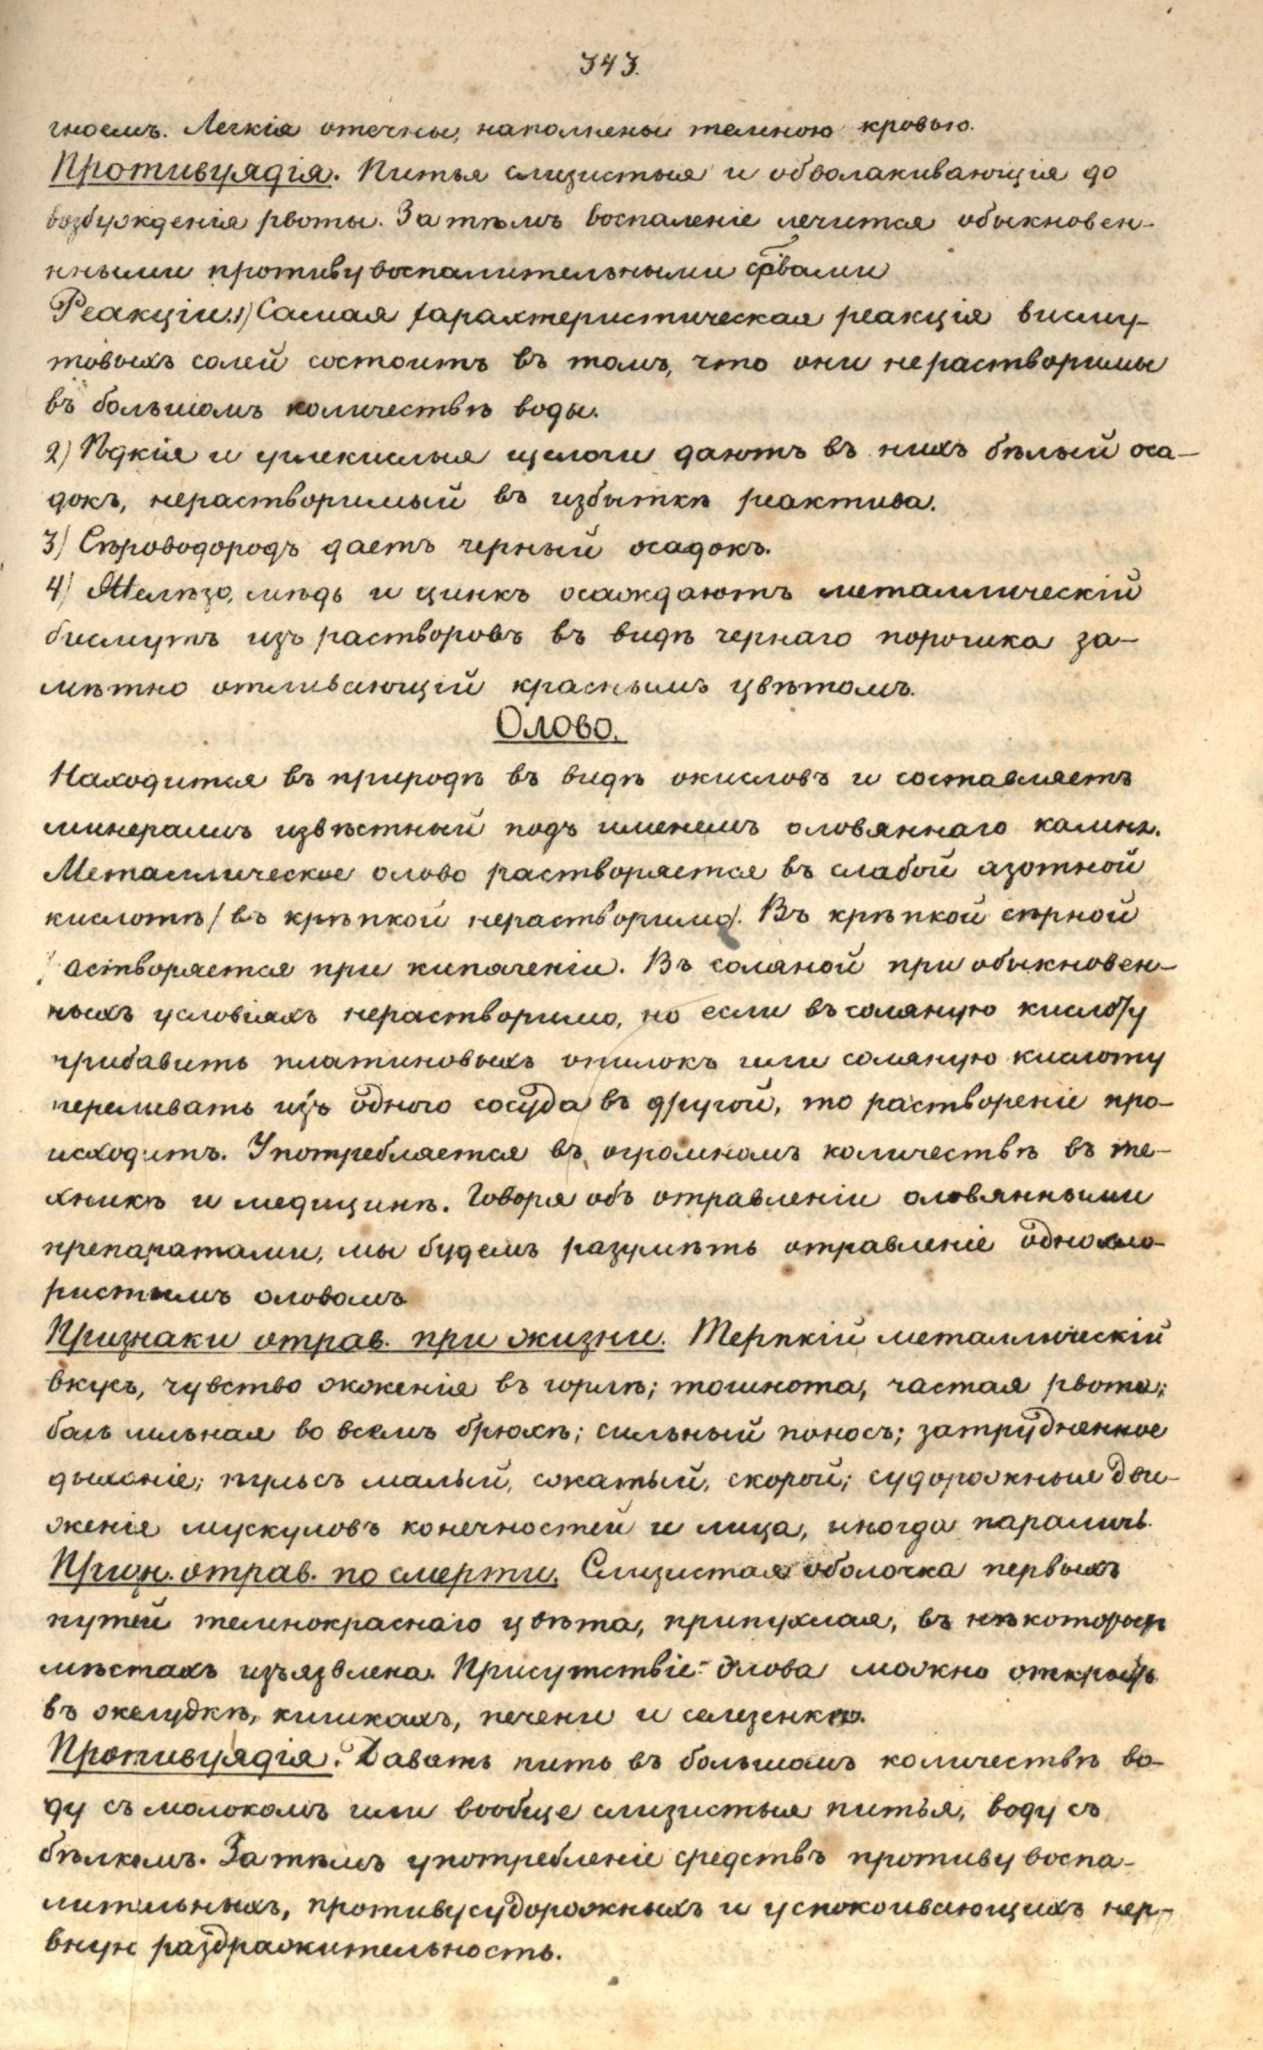 343.
гноемъ. Легкія отечны, наполнены темною кровью.
Противуядія. Питья слизистыя и обволакивающія до
возбужденія рвоты. Затѣмъ воспаленіе лечится обыкновен-
нными противувоспалительными ср̃вами
Реакціи. 1) Самая характеристическая реакція висму-
товыхъ солей состоитъ въ томъ, что они нерастворимы
въ большомъ количествѣ воды.
2) Ѣдкіе и углекислыя щелочи даютъ въ нихъ бѣлый оса-
докъ, нерастворимый въ избыткѣ реактива.
3) Сѣроводородъ даетъ черный осадокъ.
4) Желѣзо, мѣдь и цинкъ осаждаютъ металлическій
висмутъ изъ растворовъ въ видѣ чернаго порошка за-
мѣтно отливающій краснымъ цвѣтомъ.
Олово.
Находится въ природѣ въ видѣ окисловъ и составляетъ
минералъ извѣстный подъ именемъ оловяннаго камня.
Металлическое олово растворяется въ слабой азотной
кислотѣ (въ крѣпкой нерастворимо). Въ крѣпкой сѣрной
растворяется при кипяченіи. Въ соляной при обыкновен-
ныхъ условіяхъ нерастворимо, но если въ соляную кислоту
прибавить платиновыхъ опилокъ или соляную кислоту
переливать изъ одного сосуда въ другой, то раствореніе про-
исходитъ. Употребляется въ огромномъ количествѣ въ те-
хникѣ и медицинѣ. Говоря объ отравленіи оловянными
препаратами, мы будемъ разумѣть отравленіе однохло-
ристымъ оловомъ
Признаки отрав. при жизни. Терпкій металлическій
вкусъ, чувство жженія въ горлѣ; тошнота, частая рвота;
боль сильная во всемъ брюхѣ; сильный поносъ; затрудненное
дыханіе; пульсъ малый, сжатый, скорой; судорожныя дви-
женія мускуловъ конечностей и лица, иногда параличъ.
Призн. отрав. по смерти. Слизистая оболочка первыхъ
путей темнокраснаго цвѣта, припухлая, въ нѣкоторыхъ
мѣстахъ изъязвлена. Присутствіе олова можно открыть
въ желудкѣ, кишкахъ, печени и селезенкѣ.
Противуядія. Давать пить въ большомъ количествѣ во-
ду съ молокомъ или вообще слизистыя питья, воду съ
бѣлкомъ. Затѣмъ употребленіе средствъ противувоспа-
лительныхъ, противусудорожныхъ и успокоивающихъ нер-
вную раздражительность.